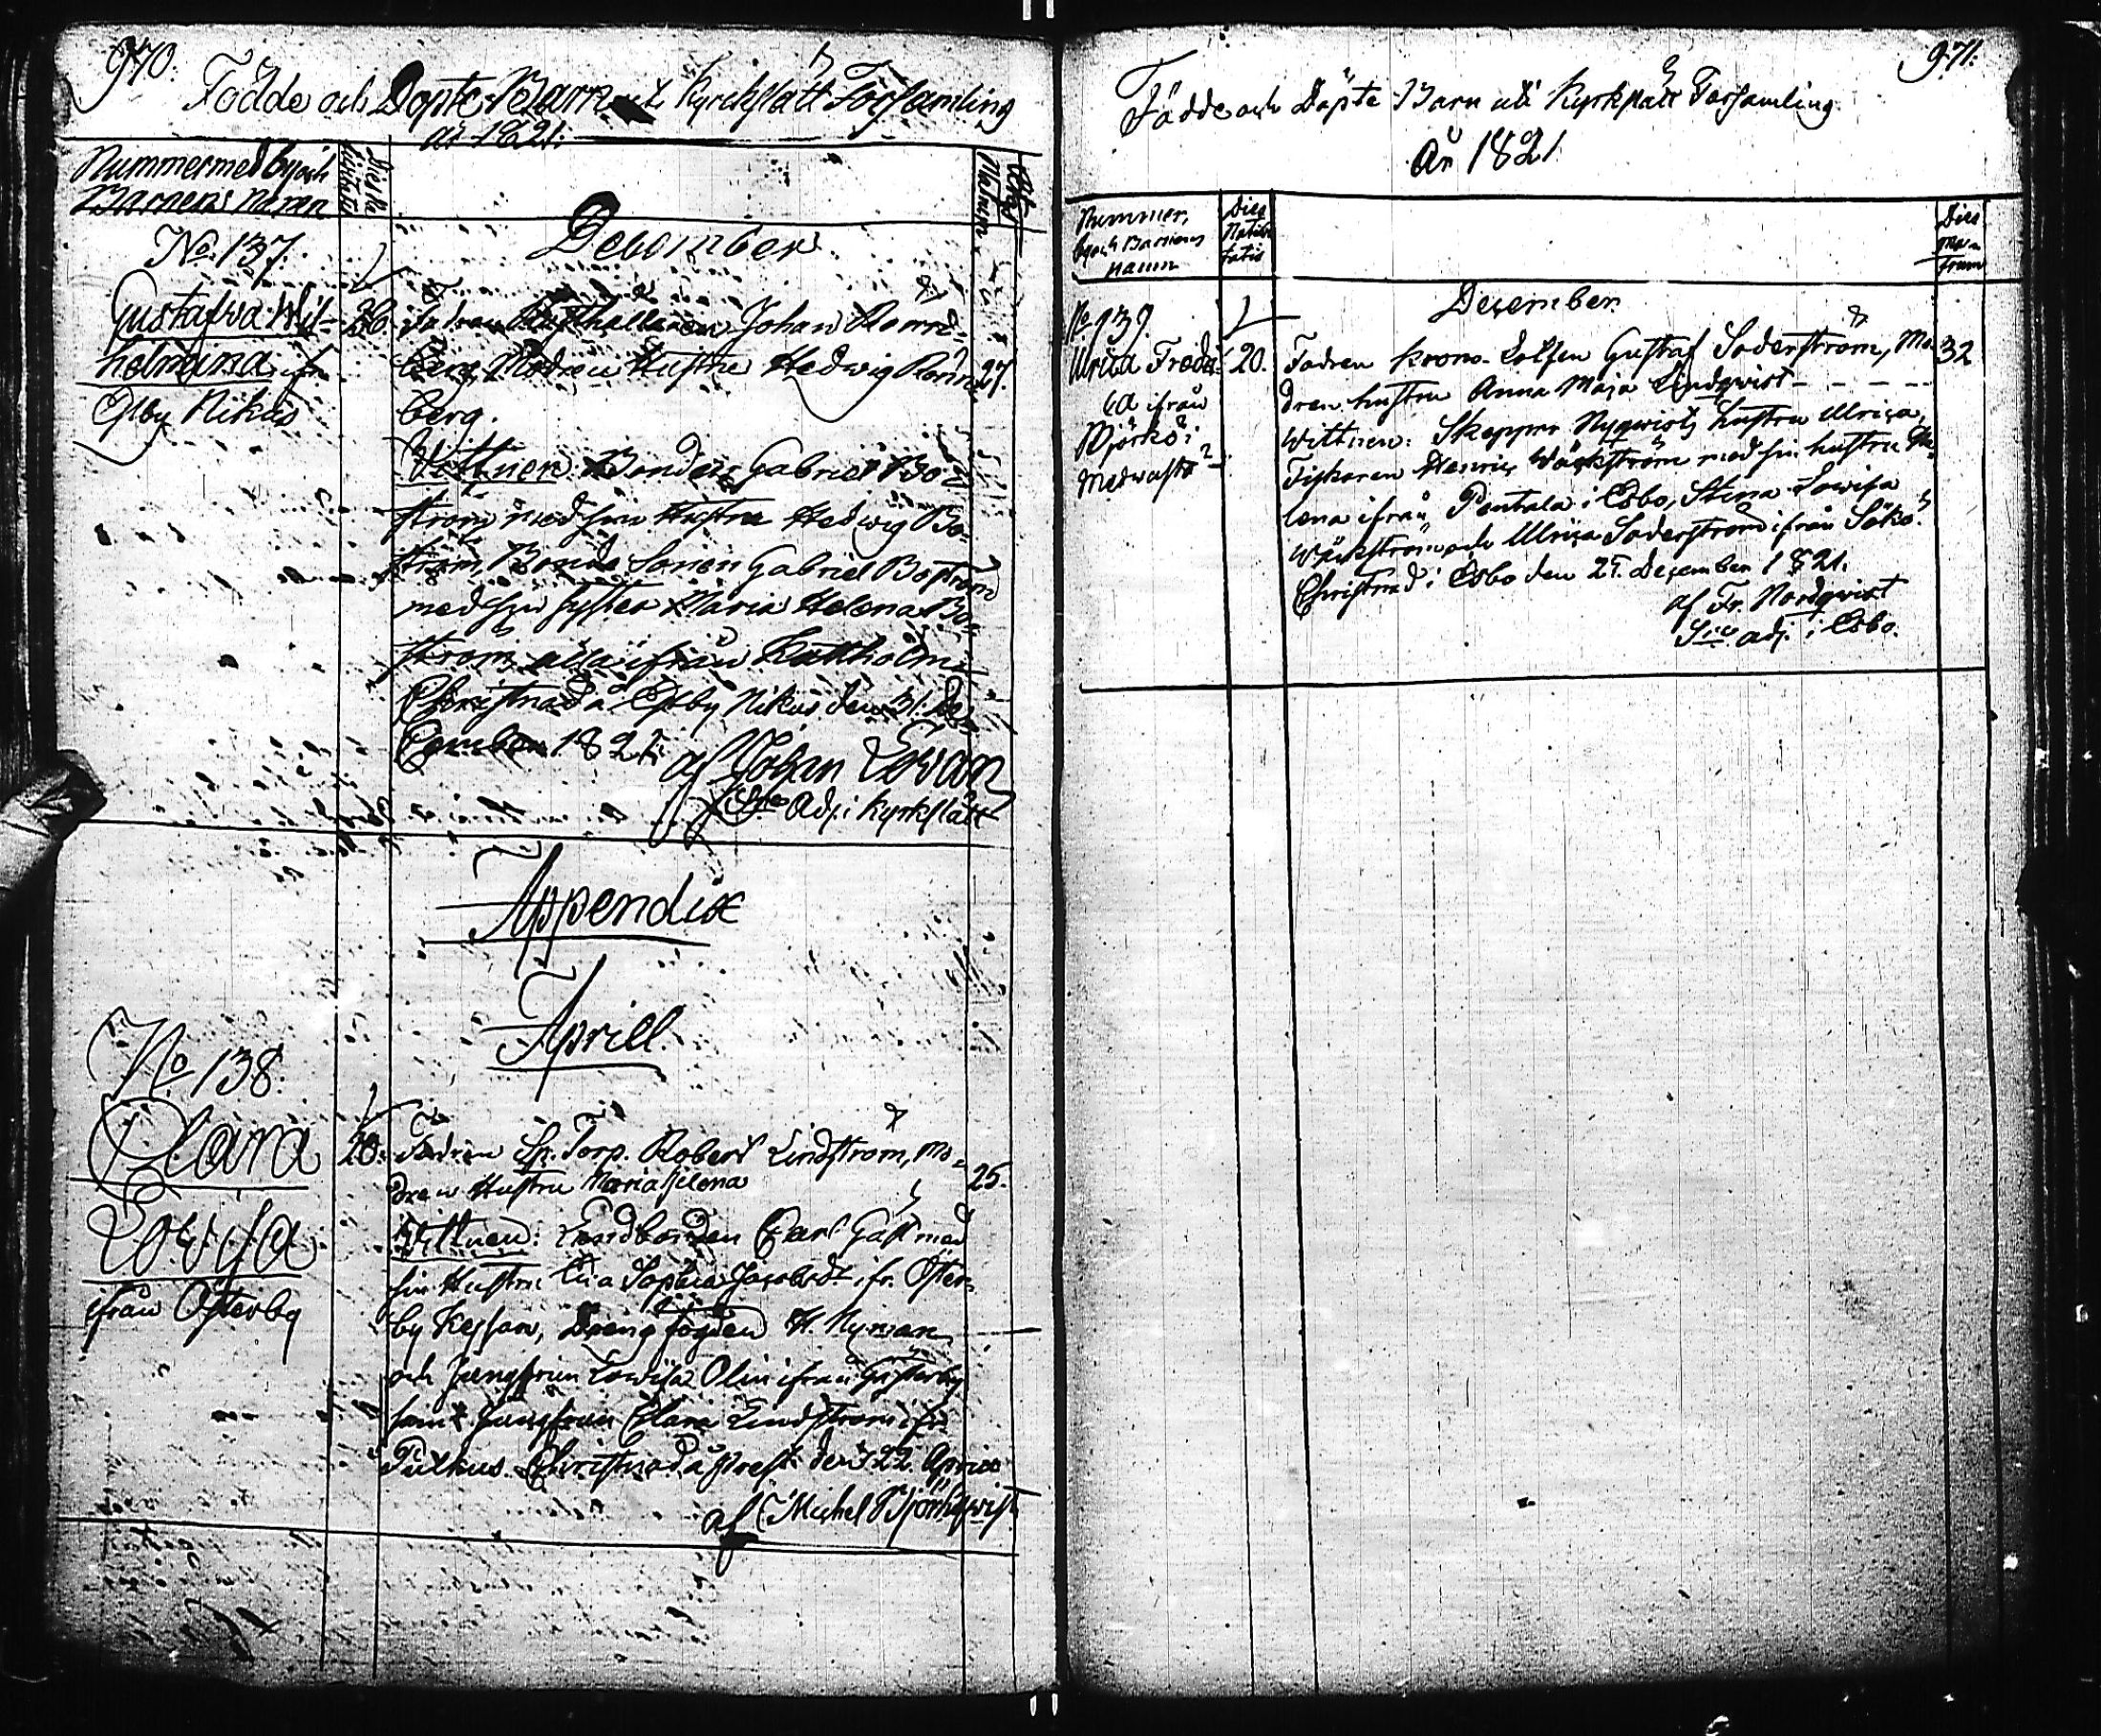 970.
Födde och Döpte Barn uti Kyrckslätt Församling
år 1821.
Nummer med by och
Barnens namn
Dies
Ætas
Matrum
No. 137.
December.
Gustafva Wil-
helmina ifr.
Esby Nikus
Fadren Johan Rönn-
berg Modren Hustru Hedwig Rönn-
27.
berg.
Vittnen: Bonden Gabriel Bo-
ström med sin Hustru Hedwig Bo-
ström, Bonde Sonen Gabriel Boström
med sin syster Maria Helena Bo-
ström alla ifrån
Christnad å Esby Nikus den 31. De-
cember 1821.
af Johan
Adj. i Kyrkslätt
Appendix
Aprill.
No 138.
Clara
Lovisa
ifrån Österby
20. Fadren Sp. Torp. Robert Lindström, Mo-
dren Hustru Maria Helena
25.
Vittnen: Landbonden Carl med
sin Hustru Sophia Jacobsdr ifr. Öster-
by Kejsars, Drengfogden H. Nyman
och Jungfrun Lovisa Olin ifrån Gesterby
samt Jungfrun Clara Lindström ifr.
Christnad å den 22 Aprill
af Michel Björkqvist
971.
Födde och Döpte Barn uti Kyrkslätt Församling
År 1821
Nummer,
by och Barnens
namn
Dies
Nativi-
tatis
Dies
Ma-
trum
December.
No 139.
Ulrica Frederi-
ca ifrån
Björkö i
20. Fadren Krono-Lotsen Gustaf Söderström, Mo-
32
dren hustru Anna Maja Lindqvist - - - -
Wittnen: Skeppar Nyqwists hustru Ulrica,
Fiskaren Henric Wäckström med sin hustru He-
lena ifrån Pentala i Esbo, Stina Lovisa
Wäckström och Ulrica Söderström ifrån Sökö.
Christnad i Esbo den 25. December 1821.
af Fr. Nordqvist
adj. i Esbo.